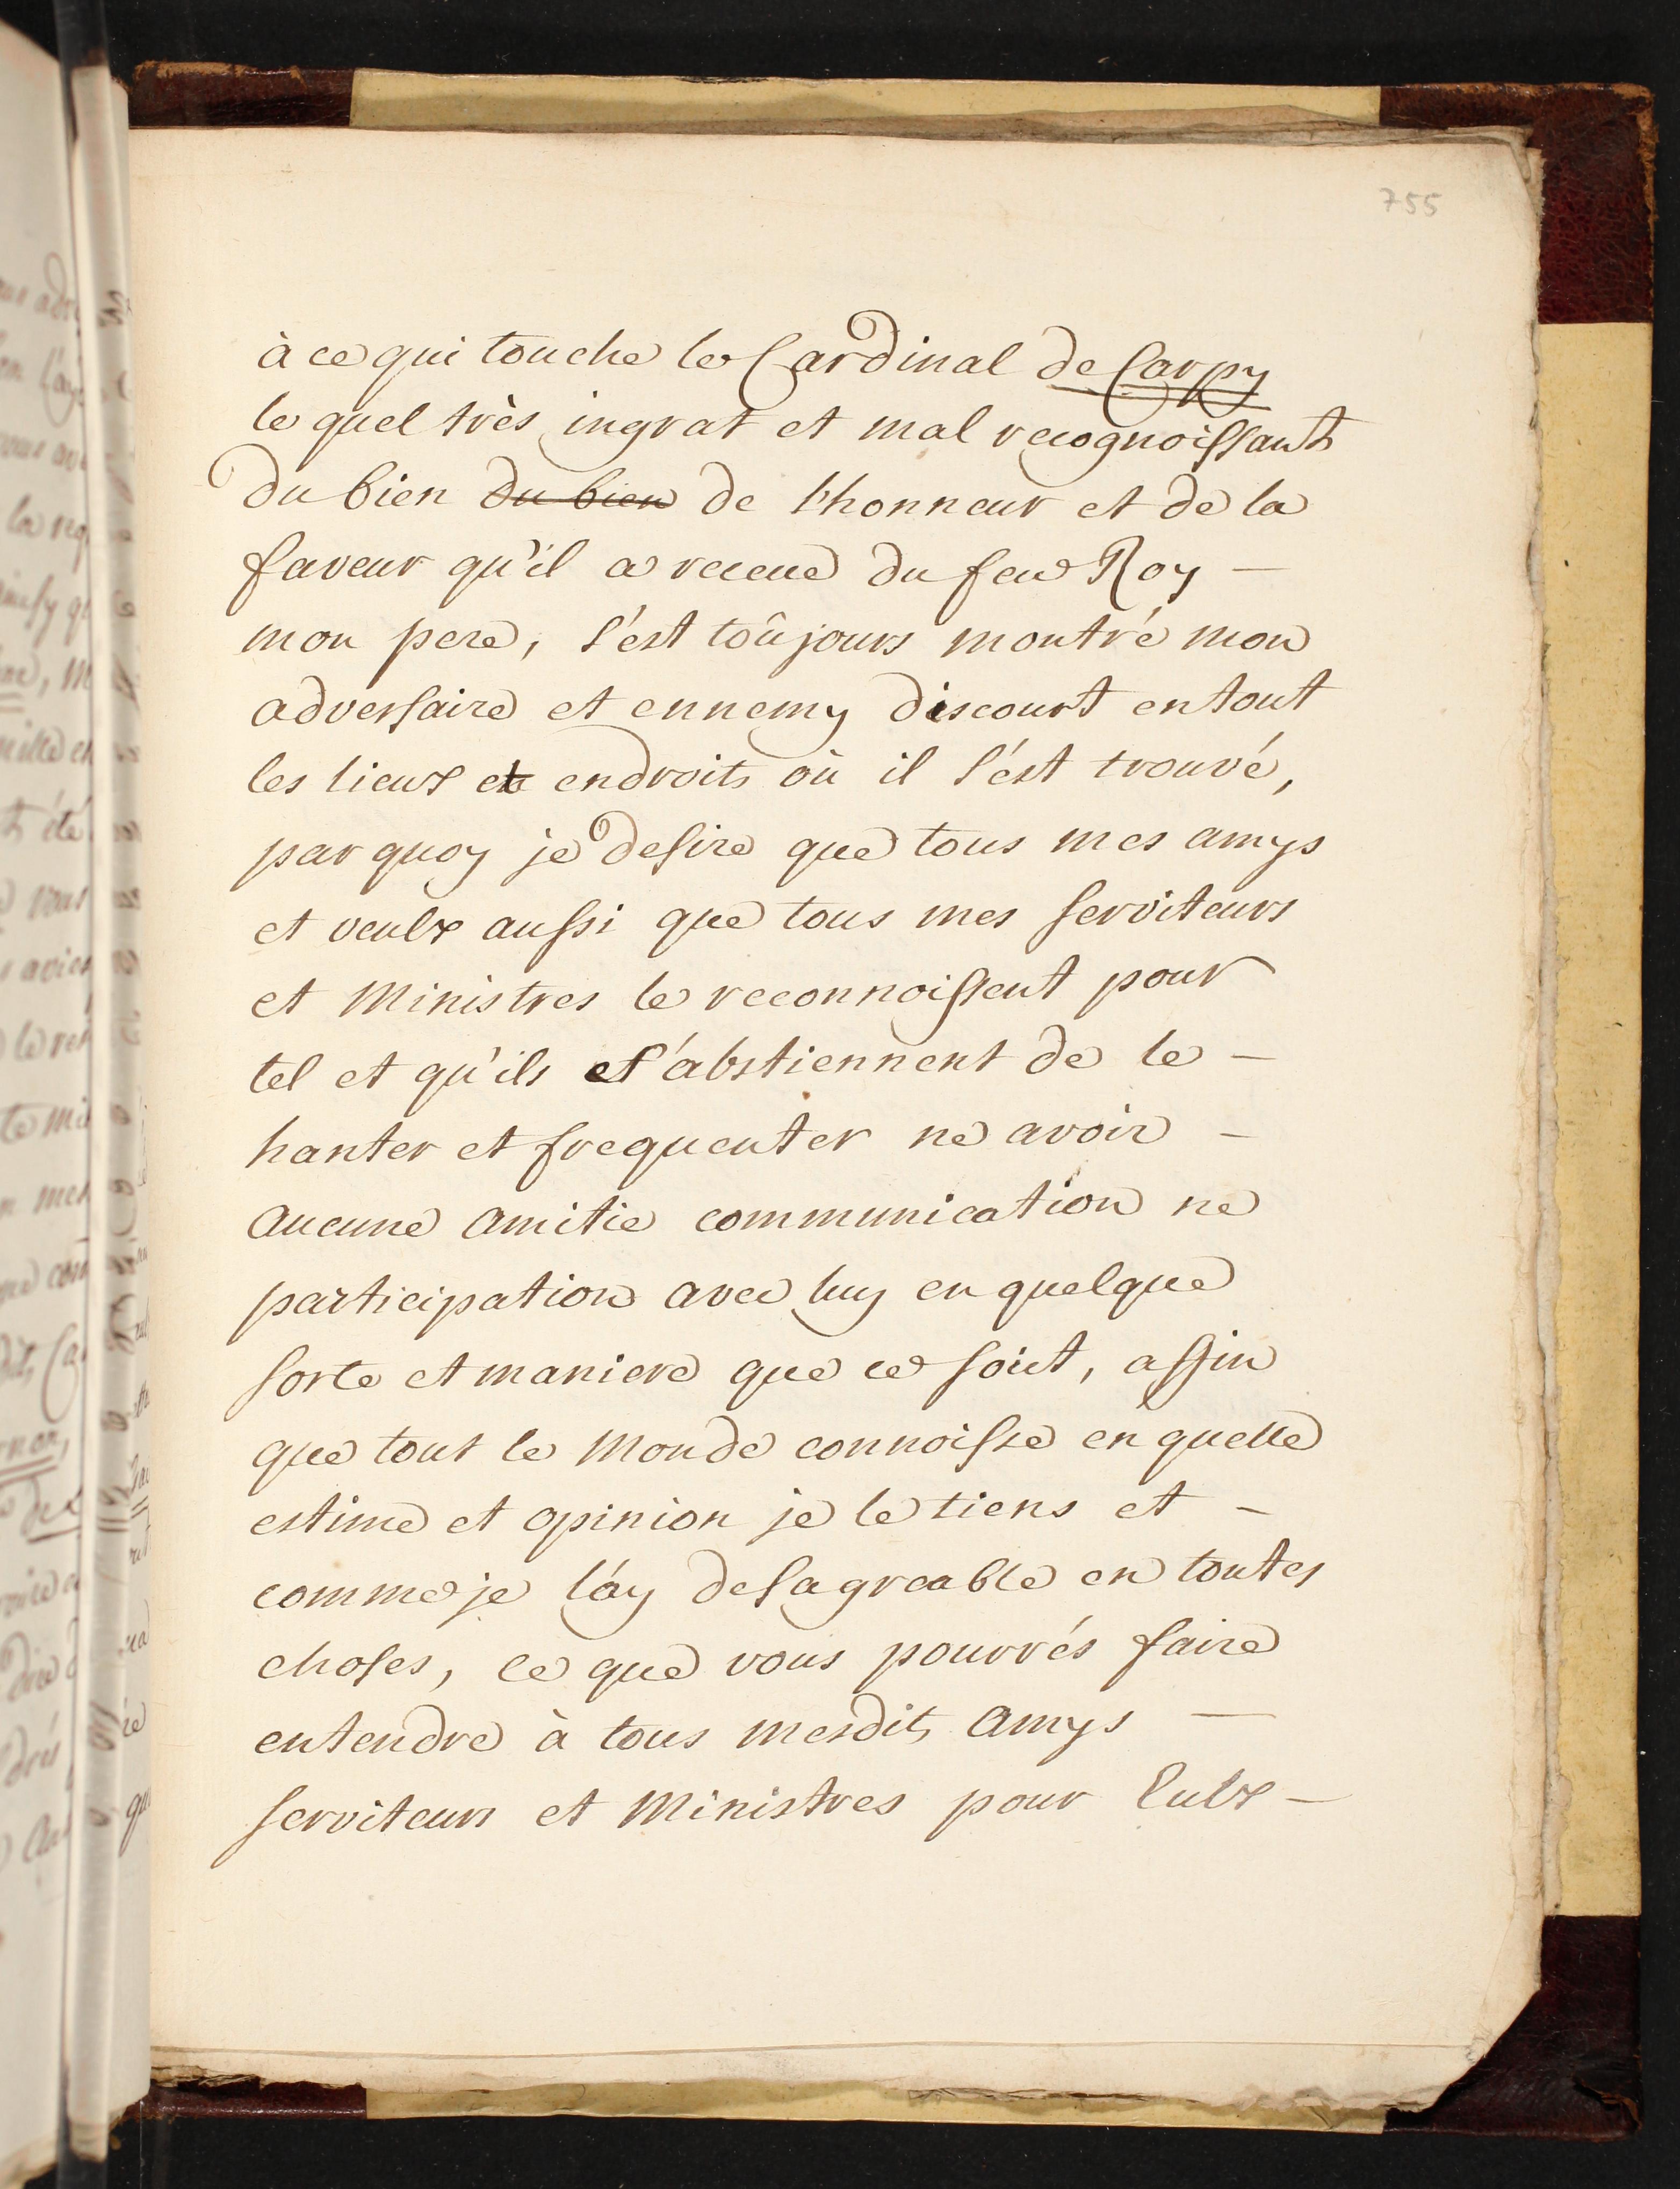 755
à ce qui touche le Cardinal de Carpy
le quel très ingrat et mal recognoissant
du bien du bien de l'honneur et de la
faveur qu'il a receue du feu Roy —
mon pere, s'est toûjours montré mon
adversaire et ennemy discourt en tout
les lieux et endroits où il s'est trouvé,
parquoy je desire que tous mes amys
et veulx aussi que tous mes serviteurs
et Ministres le reconnoissent pour
tel et qu'ils s'abstiennent de le —
hanter et frequenter ne avoir —
aucune amitie communication ne
participation avec luy en quelque
sorte et maniere que ce soit, affin
que tout le Monde connoisse en quelle
estime et opinion je le tiens et —
comme je l'ay desagreable en toutes
choses, ce que vous pourrés faire
entendre à tous mesdits amys —
serviteurs et Ministres pour Eulx —